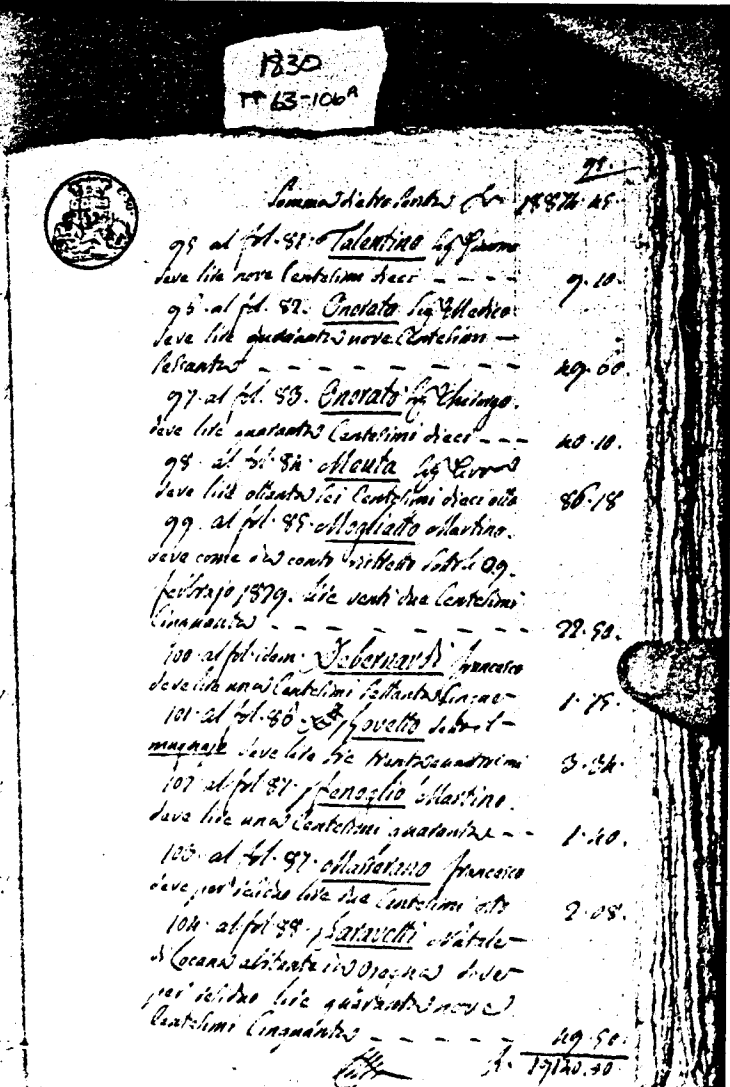 1830
pp 63-106
91.
Somma d'altro Conto 18874.45.
95 al fol. 81. Talentino Sig.
deve lire nove Centesimi dieci - - - - 9.10.
al fol. 82. Onorato Sig. Medico
deve lire quaranta nove Centesimi -
Sessanta - - - - - - - - 49.60.
97 al fol. 83. Onorato Sig. Chirurgo.
deve lire quaranta Centesimi dieci - - - 40.10.
98. al fol. 84. Mouta Sig.
deve lire ottanta sei Centesimi dieci otto 86.18
99. al fol. 85. Mogliatto Martino.
deve come da conto 29.
febbrajo lire venti due Centesimi
Cinquanta - - - - - - - - 22.50.
100. al fol. idem. Debernardi francesco
deve lire una Centesimi Settanta Cinque - 1.75.
101. al fol. 86. Govetto
mugnajo deve lire tre trentaquattro 3.34.
al fol. 87. Fenoglio Martino.
deve lire una Centesimi quaranta - - 1.40.
103. al fol. 87. francesco
deve per residuo lire due Centesimi otto 2.08.
104. al fol. 88. Saravetti Natale -
di abitante in deve
per residuo lire quaranta nove
Centesimi Cinquanta - - - - - 49.50.
19120.40